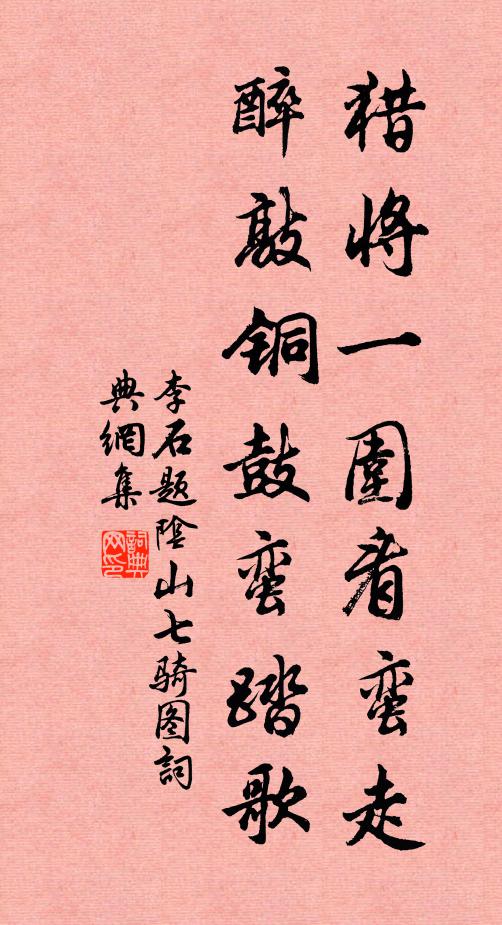 猎将一围看蛮走
醉敲铜鼓蛮踏歌
李石题陰山七骑图詞
典網集
詞典网印